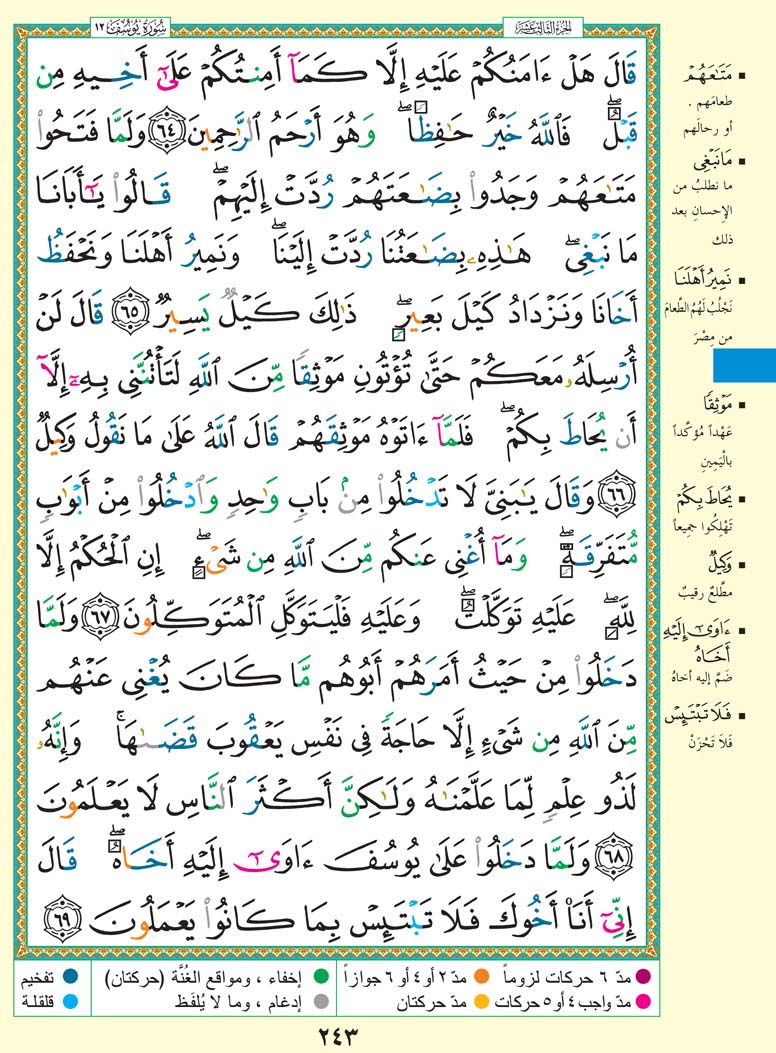 الجزء الثالث عشر
سُورَةُ يُوسُفَ ١٢
قَالَ هَلْ ءَامَنُكُمْ عَلَيْهِ إِلَّا كَمَآ أَمِنتُكُمْ عَلَىٰٓ أَخِيهِ مِن
قَبْلُ ۖ فَٱللَّهُ خَيْرٌ حَـٰفِظًا ۖ وَهُوَ أَرْحَمُ ٱلرَّٰحِمِينَ ﴿٦٤﴾ وَلَمَّا فَتَحُوا۟
مَتَـٰعَهُمْ وَجَدُوا۟ بِضَـٰعَتَهُمْ رُدَّتْ إِلَيْهِمْ ۖ قَالُوا۟ يَـٰٓأَبَانَا
مَا نَبْغِى ۖ هَـٰذِهِۦ بِضَـٰعَتُنَا رُدَّتْ إِلَيْنَا ۖ وَنَمِيرُ أَهْلَنَا وَنَحْفَظُ
أَخَانَا وَنَزْدَادُ كَيْلَ بَعِيرٍ ۖ ذَٰلِكَ كَيْلٌ يَسِيرٌ ﴿٦٥﴾ قَالَ لَنْ
أُرْسِلَهُۥ مَعَكُمْ حَتَّىٰ تُؤْتُونِ مَوْثِقًا مِّنَ ٱللَّهِ لَتَأْتُنَّنِى بِهِۦٓ إِلَّآ
أَن يُحَاطَ بِكُمْ ۖ فَلَمَّآ ءَاتَوْهُ مَوْثِقَهُمْ قَالَ ٱللَّهُ عَلَىٰ مَا نَقُولُ وَكِيلٌ
﴿٦٦﴾ وَقَالَ يَـٰبَنِىَّ لَا تَدْخُلُوا۟ مِنۢ بَابٍ وَٰحِدٍ وَٱدْخُلُوا۟ مِنْ أَبْوَٰبٍ
مُّتَفَرِّقَةٍ ۖ وَمَآ أُغْنِى عَنكُم مِّنَ ٱللَّهِ مِن شَىْءٍ ۖ إِنِ ٱلْحُكْمُ إِلَّا
لِلَّهِ ۖ عَلَيْهِ تَوَكَّلْتُ ۖ وَعَلَيْهِ فَلْيَتَوَكَّلِ ٱلْمُتَوَكِّلُونَ ﴿٦٧﴾ وَلَمَّا
دَخَلُوا۟ مِنْ حَيْثُ أَمَرَهُمْ أَبُوهُم مَّا كَانَ يُغْنِى عَنْهُم
مِّنَ ٱللَّهِ مِن شَىْءٍ إِلَّا حَاجَةً فِى نَفْسِ يَعْقُوبَ قَضَىٰهَا ۚ وَإِنَّهُۥ
لَذُو عِلْمٍ لِّمَا عَلَّمْنَـٰهُ وَلَـٰكِنَّ أَكْثَرَ ٱلنَّاسِ لَا يَعْلَمُونَ
﴿٦٨﴾ وَلَمَّا دَخَلُوا۟ عَلَىٰ يُوسُفَ ءَاوَىٰٓ إِلَيْهِ أَخَاهُ ۖ قَالَ
إِنِّىٓ أَنَا۠ أَخُوكَ فَلَا تَبْتَئِسْ بِمَا كَانُوا۟ يَعْمَلُونَ ﴿٦٩﴾
▪ مَتَـٰعَهُمْ
طعامَهم .
أو رحالَهم
▪ مَا نَبْغِى
ما نطلبُ من
الإحسانِ بعد
ذلك
▪ نَمِيرُ أَهْلَنَا
نَجْلُبُ لَهُمُ الطَّعامَ
من مِصْرَ
▪ مَوْثِقًا
عَهْداً مُؤكَّداً
باليَمينِ
▪ يُحَاطَ بِكُمْ
تَهْلِكُوا جميعاً
▪ وَكِيلٌ
مطَّلعٌ رقيبٌ
▪ ءَاوَىٰٓ إِلَيْهِ
أَخَاهُ
ضَمَّ إليه أخاهُ
▪ فَلَا تَبْتَئِسْ
فَلاَ تَحْزَنْ
● مدّ ٦ حركات لزوماً ● مدّ ٢ أو ٤ أو ٦ جوازاً
● مدّ واجب ٤ أو ٥ حركات ● مدّ حركتان
● إخفاء ، ومواقع الغُنَّة (حركتان)
● إدغام ، وما لا يُلفَظ
● تفخيم
● قلقلة
٢٤٣